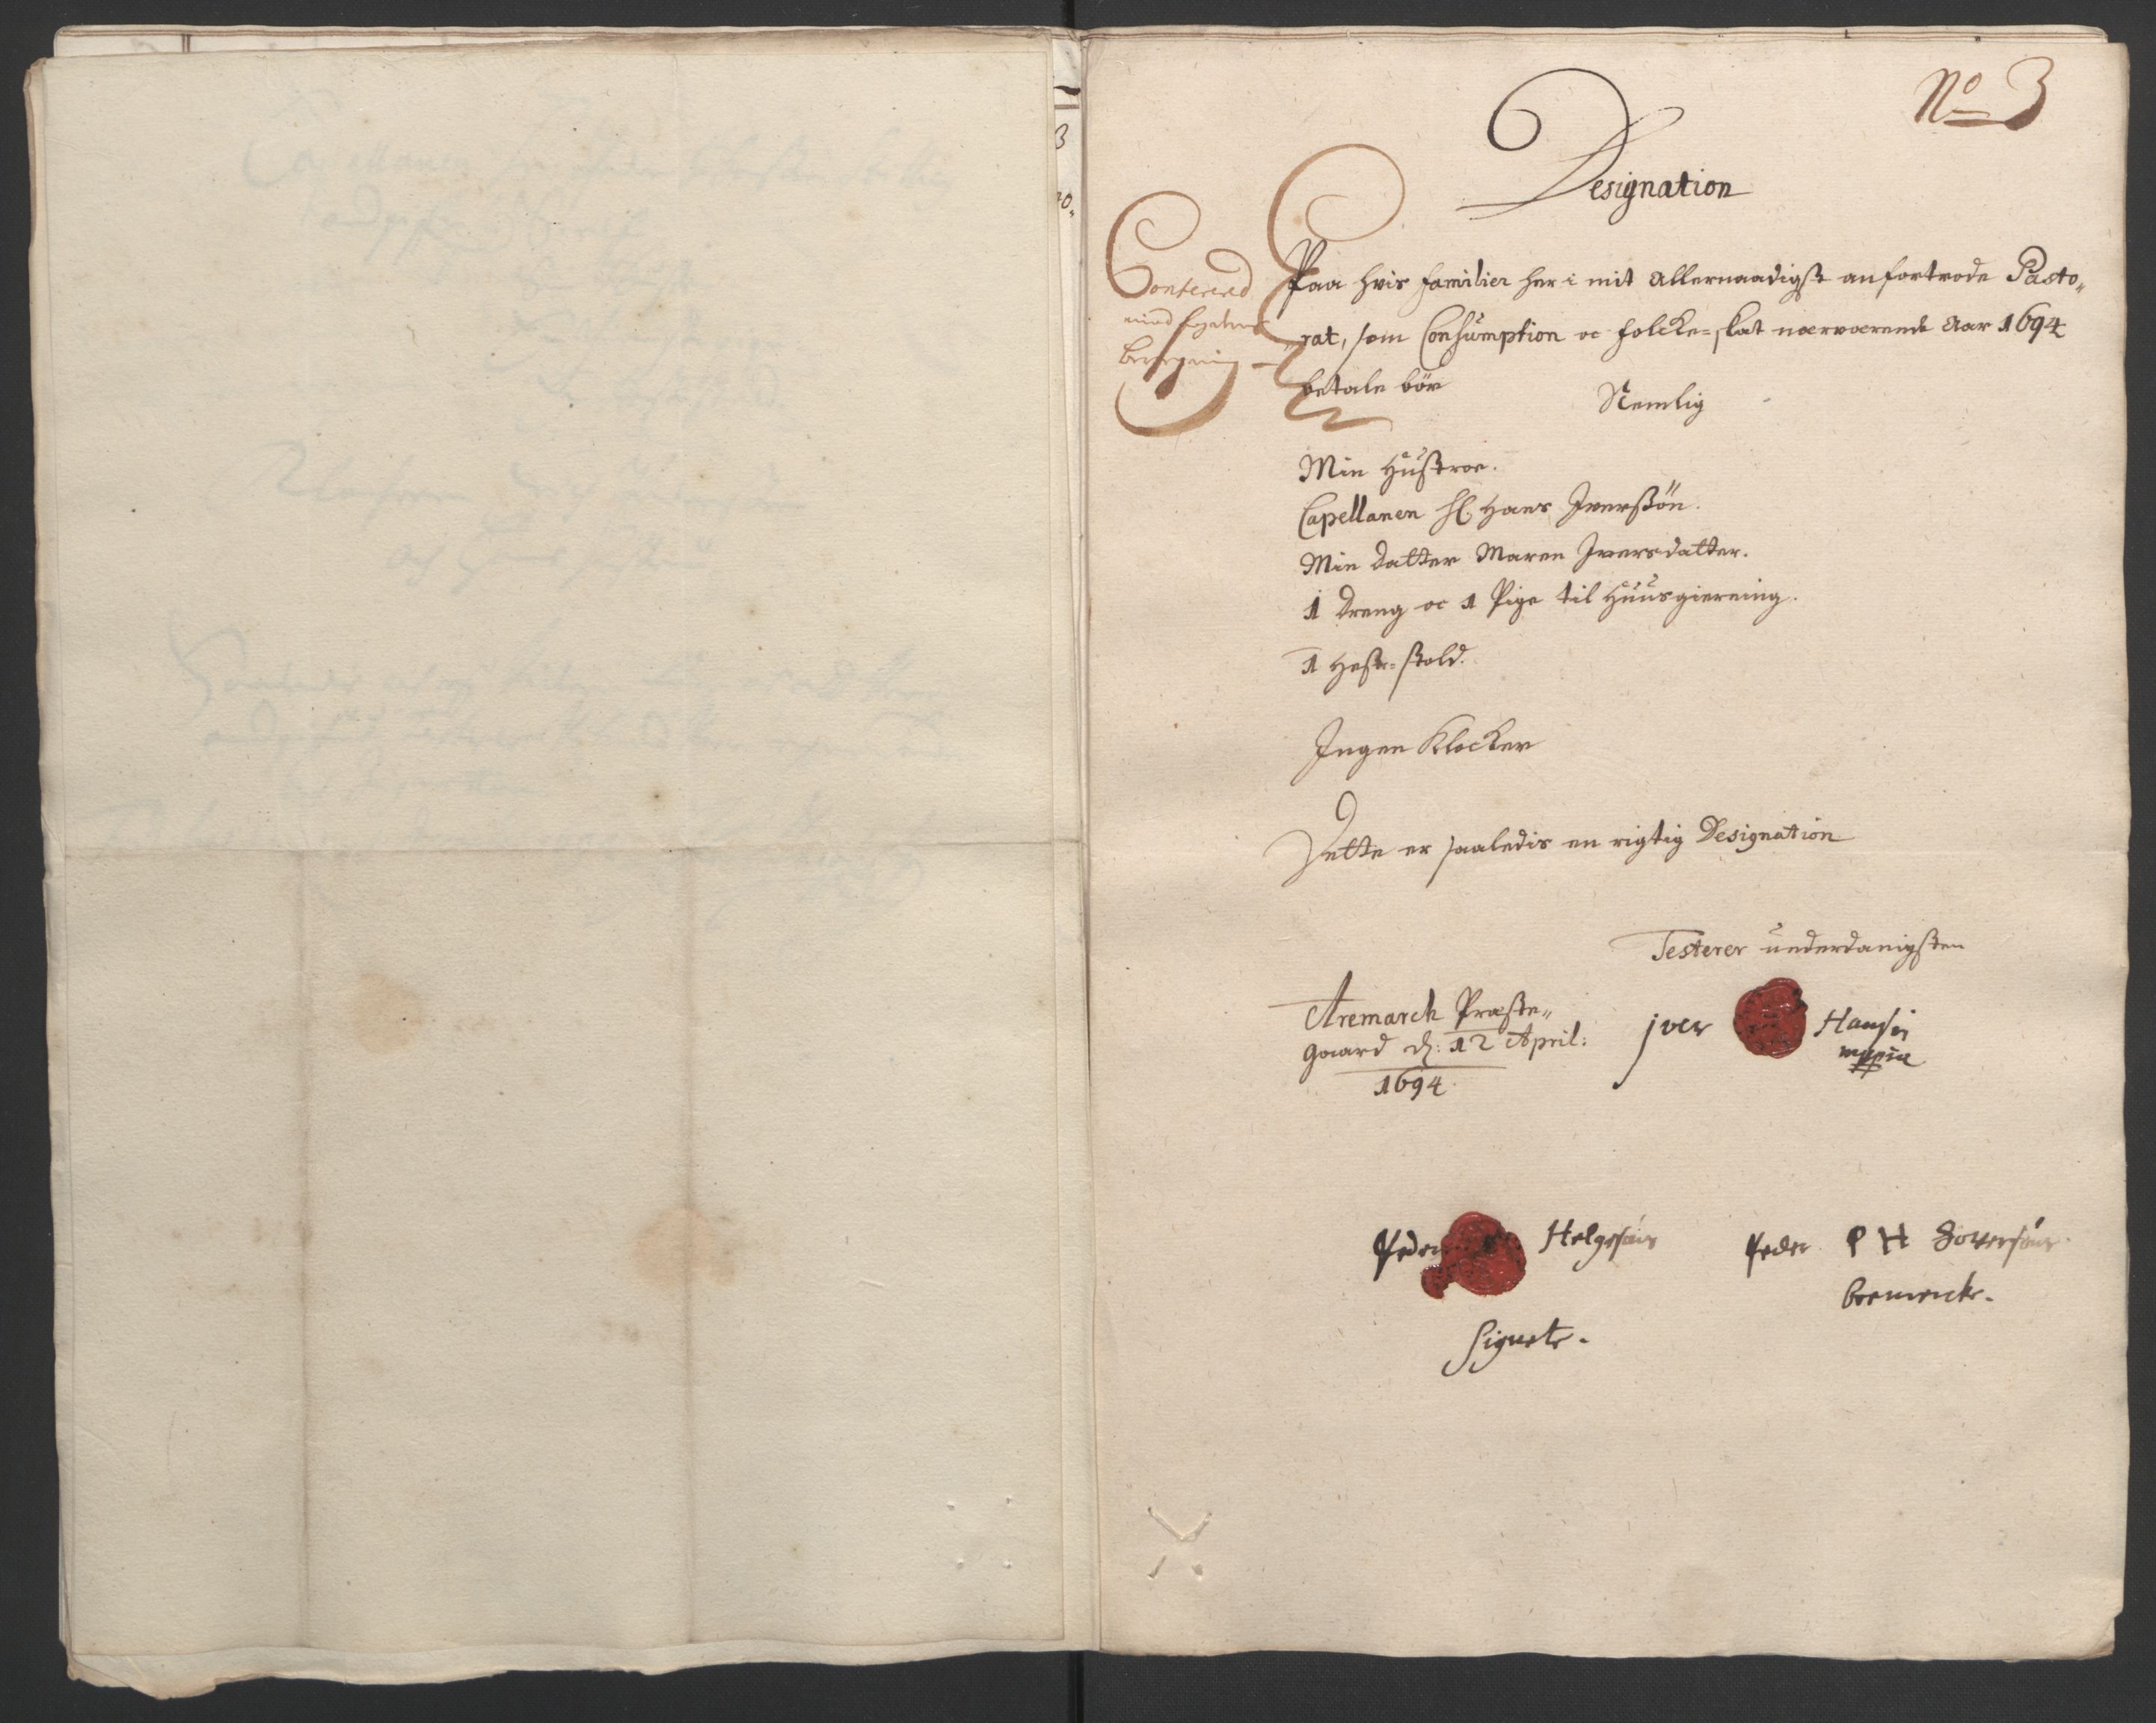 No 3
Designation
Paa hvis familier her i mit allernaadigst anfortrode Pasto„
„rat, som Consumption oc folcke=skat nærværende Aar 1694
betale bör
Nemlig
Confererd
med
Min Hustroe.
Capellanen Hr Hans Iverssön.
Min Datter Maren Iversdatter.
1 Dreng oc 1 Pige til Huusgierning.
1 Heste=skold.
Ingen Klocker
Dette er saaledis en rigtig Designation
Testerer underdanigsten
Aremarch Præste„
gaard d: 12 April:
1694
jver Hansøn
mppia
Peder Helgesøns
Signete.
Peder P H
bomercke.